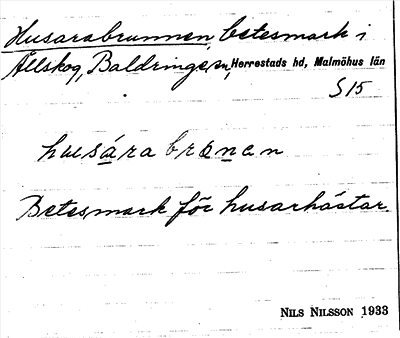 Husarabrunnen, betesmark i
Ällskog, Baldringe sn, Herrestads hd, Malmöhus län
S 15
husára bronen
Betesmark för husarhästar.
NILS NILSSON 1933